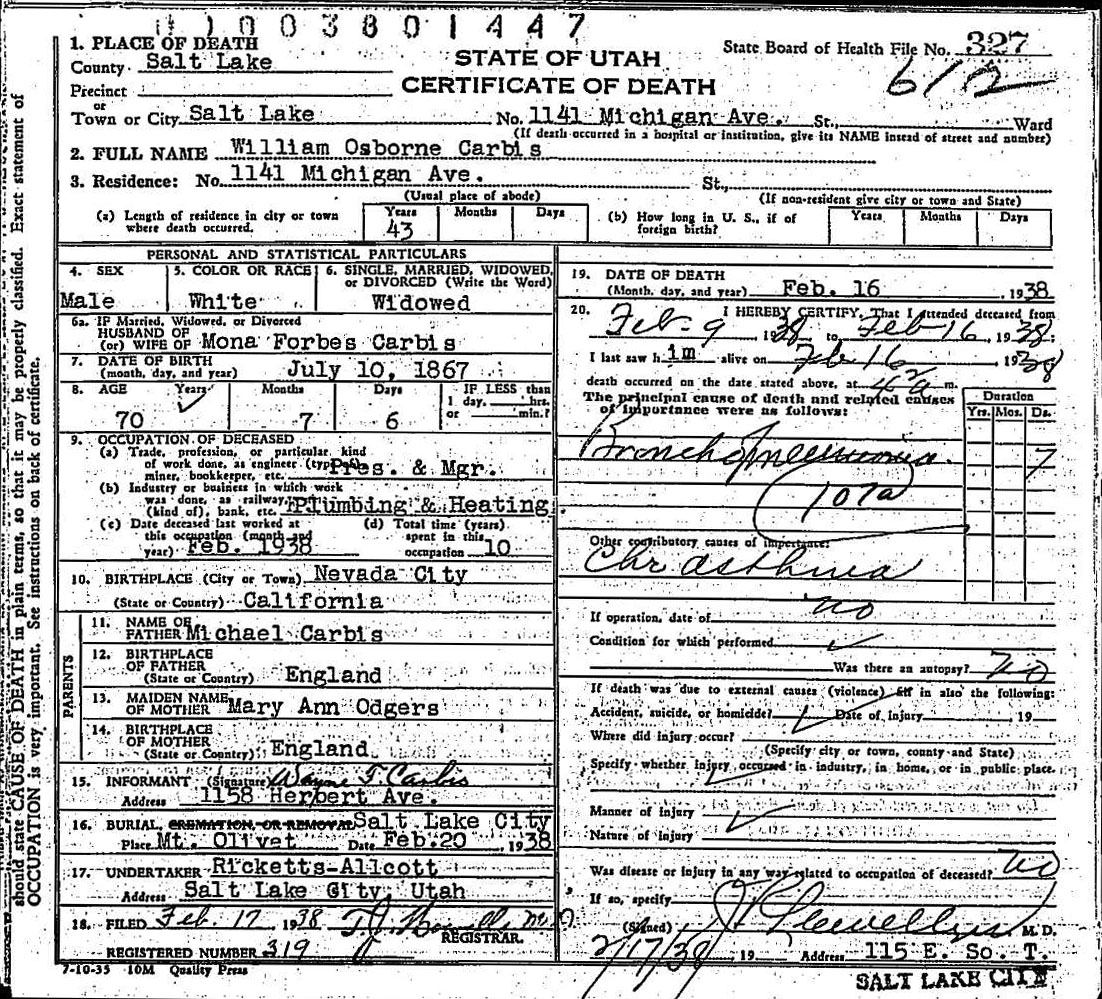 003801447
1. PLACE OF DEATH
County Salt Lake
STATE OF UTAH
State Board of Health File No. 327
6/12
Precinct
CERTIFICATE OF DEATH
or
Town or City Salt Lake No. 1141 Michigan Ave. St., Ward
(If death occurred in a hospital or institution, give its NAME instead of street and number)
2. FULL NAME William Osborne Carbis
3. Residence: No. 1141 Michigan Ave. St.,
(Usual place of abode) (If non-resident give city or town and State)
(a) Length of residence in city or town where death occurred. Years 43 Months Days
(b) How long in U. S., if of foreign birth? Years Months Days
should state CAUSE OF DEATH in plain terms, so that it may be properly classified. Exact statement of
OCCUPATION is very important. See instructions on back of certificate.
PERSONAL AND STATISTICAL PARTICULARS
4. SEX 5. COLOR OR RACE 6. SINGLE, MARRIED, WIDOWED, or DIVORCED (Write the Word)
Male White Widowed
6a. IF Married, Widowed, or Divorced
HUSBAND OF
(or) WIFE OF Mona Forbes Carbis
7. DATE OF BIRTH
(month, day, and year) July 10, 1867
8. AGE Years Months Days IF LESS than
1 day, hrs.
or min.?
70 7 6
9. OCCUPATION OF DECEASED
(a) Trade, profession, or particular kind
of work done, as engineer Pres. & Mgr.
miner, bookkeeper, etc.
(b) Industry or business in which work
was done, as railway
(kind of), bank, etc. Plumbing & Heating
(c) Date deceased last worked at
this occupation (month and
year) Feb. 1938
(d) Total time (years)
spent in this
occupation 10
10. BIRTHPLACE (City or Town) Nevada City
(State or Country) California
PARENTS
11. NAME OF
FATHER Michael Carbis
12. BIRTHPLACE
OF FATHER
(State or Country) England
13. MAIDEN NAME
OF MOTHER Mary Ann Odgers
14. BIRTHPLACE
OF MOTHER
(State or Country) England
15. INFORMANT (Signature) Wayne F Carbis
Address 1158 Herbert Ave.
16. BURIAL CREMATION, OR REMOVAL Salt Lake City
Place Mt. Olivet Date Feb. 20, 1938
17. UNDERTAKER Ricketts-Allcott
Address Salt Lake City, Utah
18. FILED Feb. 17 1938 M.D.
REGISTRAR.
REGISTERED NUMBER 319
7-10-35 10M Quality Press
19. DATE OF DEATH
(Month, day, and year) Feb. 16, 1938
20. I HEREBY CERTIFY, That I attended deceased from
Feb-9 1938 to Feb-16, 1938;
I last saw him alive on Feb 16 1938
death occurred on the date stated above, at m.
The principal cause of death and related causes
of importance were as follows:
Duration
Yrs. Mos. Ds.
Bronchopneumonia 7
107a
Other contributory causes of importance:
Chr asthma
If operation, date of no
Condition for which performed
Was there an autopsy? No
If death was due to external causes (violence) fill in also the following:
Accident, suicide, or homicide? Date of injury 19
Where did injury occur?
(Specify city or town, county and State)
Specify whether injury occurred in industry, in home, or in public place.
Manner of injury
Nature of injury
Was disease or injury in any way related to occupation of deceased? No
If so, specify
(Signed) Llewellyn M. D.
2/17/38, 19 Address 115 E. So. T.
SALT LAKE CITY